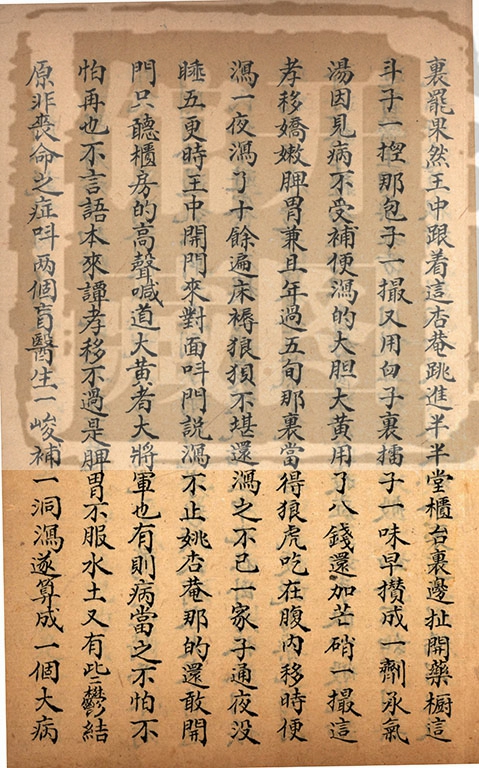 裏罷果然王中跟着這杏菴跳進半半堂櫃台裏邊扯開藥橱這
斗子一揑那包子一撮又用臼子裏擂子一味早攅成一劑承氣
湯因見病不受補便瀉的大胆大黄用了八錢還加芒硝一撮這
孝移嬌嫩脾胃兼且年過五旬那裏當得狼虎吃在腹内移時便
瀉一夜瀉了十餘遍床褥狼狽不堪還瀉之不已一家子通夜没
睡五更時王中開門來對面呌門説瀉不止姚杏菴那的還敢開
門只聽櫃房的高聲喊道大黄者大將軍也有則病當之不怕不
怕再也不言語本來譚孝移不過是脾胃不服水土又有些鬱結
原非喪命之症呌两個盲醫生一峻補一洞瀉遂算成一個大病